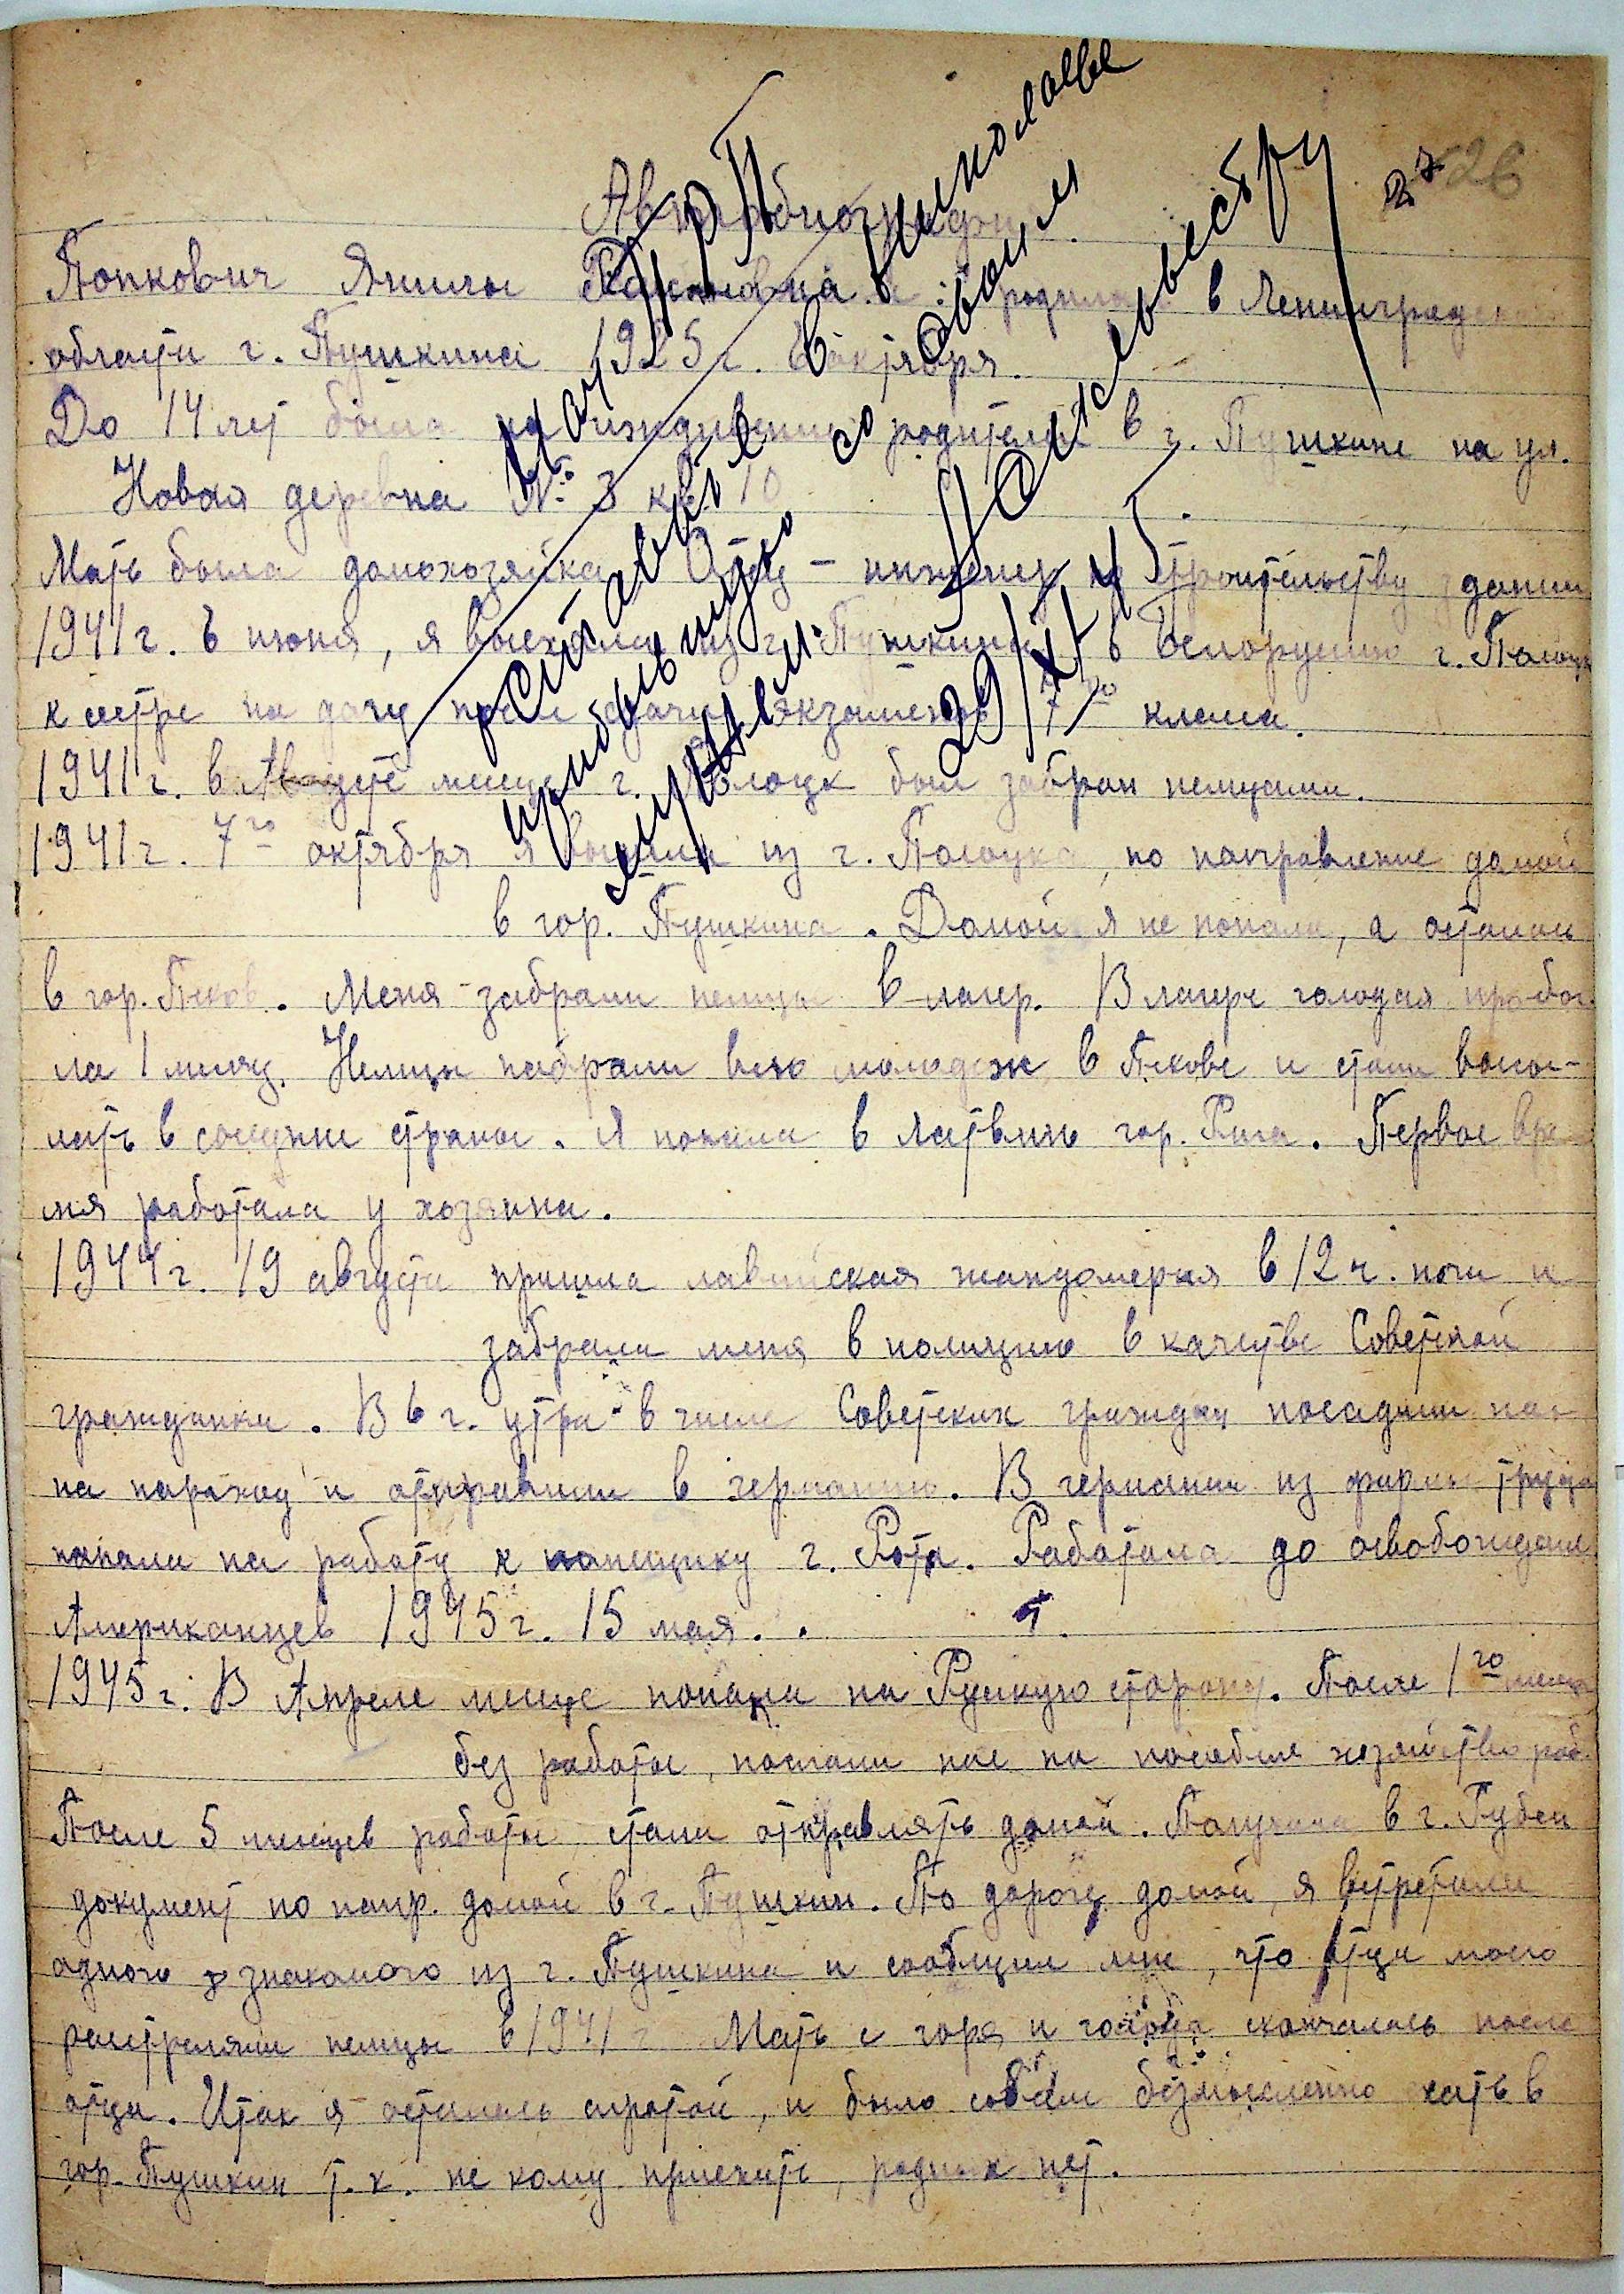 26
Автобиография.
Попкович Янины родилась в Ленинградской
области г. Пушкина 1925 г. 6 октября.
До 14 лет была на иждивении родителей в г. Пушкине на ул.
Новая деревна № 3 кв. 10
Мать была домохозяйка Отец – инженер по строительству здании
1941 г. 6 июня, я выехала из г. Пушкина в Белорусию г. Полоцк
к сестре на дачу после сдачи экзаменов 7го класса.
1941 г. в Августе месяце г. Полоцк был забран немцами.
1941 г. 7го октября я вышла из г. Полоцка, по направление домой
в гор. Пушкина. Домой я не попала, а осталась
в гор. Псков. Меня забрали немцы в лагер. В лагере голодая пробы-
ла 1 месяц. Немцы набрали всю молодеж в Пскове и стали высы-
лать в соседние страны. Я попала в Латвию гор. Рига. Первое вре-
мя работала у хозяина.
1944 г. 19 августа пришла лавийская жандомерия в 12 ч. ночи и
забрали меня в полицию в качестве Советской
гражданки. В 6 ч. утра в числе Советских граждан посадили нас
на пароход и отправили в германию. В германии из фирмы труда
попали на работу к помещику г. Рота. Работала до освобождения
Американцев 1945 г. 15 мая.
1945 г. В Апреле месяце попали на Рускую сторону. После 1го месяца
без работы, послали нас на хозяйство раб.
После 5 месяцев работы стали отправлять домой. Получила в г. Губен
документ по напр. домой в г. Пушкин. По дороге домой, я встретила
одного знакомого из г. Пушкина и сообщил мне, что отца моего
расстреляли немцы в 1941 г Мать с горя и голода скончалась после
отца. Итак я осталась сиротой, и было совсем безмысленно ехать в
гор. Пушкин т. к. не кому приехать, родных нет.
Нач. ПРП
оставьте в Николаеве
со своим
29/XI 45